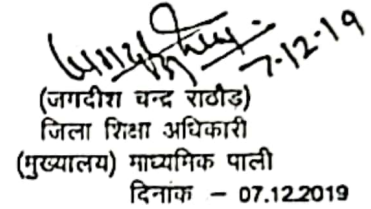 7-12-19
(जगदीश चन्द्र राठौड़)
जिला शिक्षा अधिकारी
(मुख्यालय) माध्यमिक पाली
दिनांक – 07.12.2019